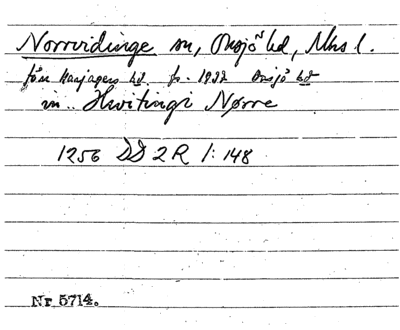 Norrvidinge sn, Onsjö hd, Mhs l.
från Harjagers hd. fr. 1922 Onsjö hd
in.. Hwitingi Nørre
1256 DD 2R 1: 148
Nr 5714.